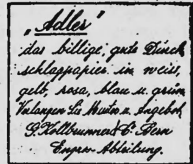 „Adler"
das billige, gute Durch
schlagpapier in weiß,
gelb, rosa, blau u. grün
Verlangen Sie Muster u. Angebot
G. Kollbrunner & Co. Bern
Engros-Abteilung.